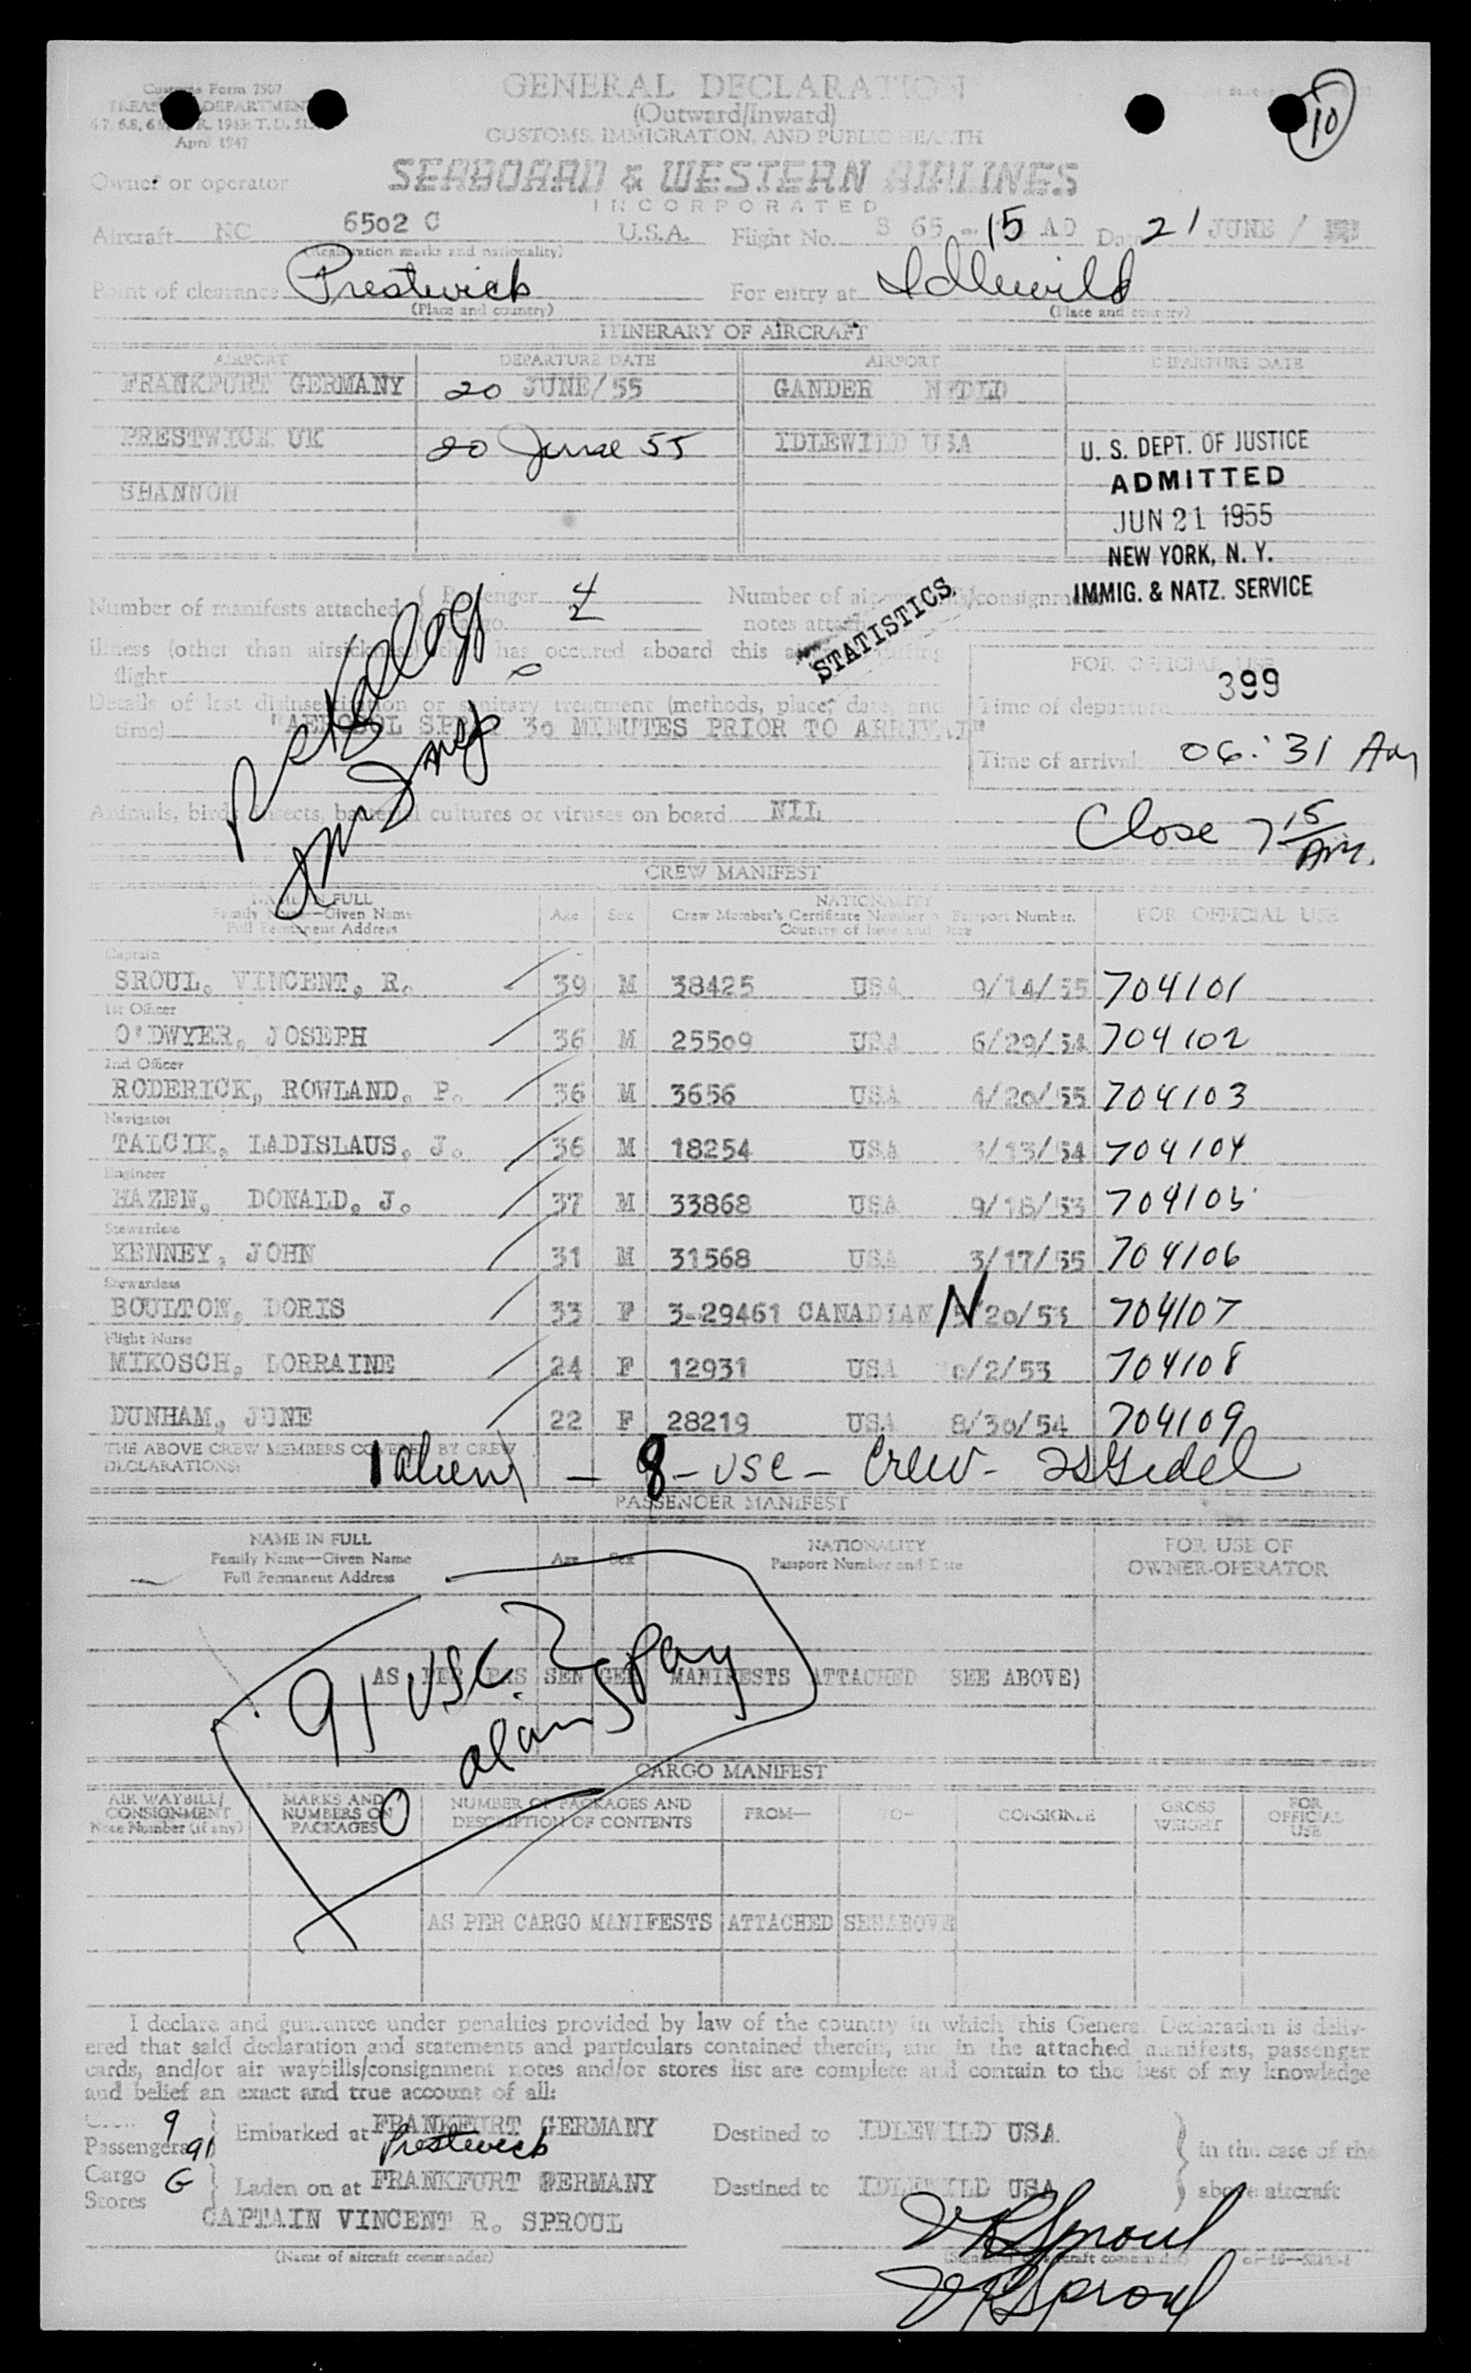 Customs Form 7507
TREASURY DEPARTMENT
April 1947
10
GENERAL DECLARATION
(Outward/Inward)
CUSTOMS, IMMIGRATION, AND PUBLIC HEALTH
Owner or operator SEABOARD & WESTERN AIRLINES
INCORPORATED
Aircraft NC 6502 C U.S.A. Flight No. S 65 - 15 AD Date 21 JUNE /
(Registration marks and nationality)
Point of clearance Prestwick For entry at Idlewild
(Place and country) (Place and country)
ITINERARY OF AIRCRAFT
AIRPORT DEPARTURE DATE AIRPORT DEPARTURE DATE
FRANKFURT GERMANY 20 JUNE/55 GANDER NFDLD
PRESTWICK UK 20 June 55 IDLEWILD USA
SHANNON
U. S. DEPT. OF JUSTICE
ADMITTED
JUN 21 1955
NEW YORK, N. Y.
IMMIG. & NATZ. SERVICE
Number of manifests attached { Passenger 4
Cargo 2
Number of consignment
notes attached
STATISTICS
Illness (other than airsickness) that has occured aboard this during
flight 0
Details of last disinsectization or sanitary treatment (methods, place, date, and
time) "AEROSOL SPRAY 30 MINUTES PRIOR TO ARRIVAL"
FOR OFFICIAL USE
399
Time of departure
Time of arrival 06:31 Am
Animals, birds, insects, bacterial cultures or viruses on board NIL
Close 7 15 Am.
Insp
CREW MANIFEST
NAME IN FULL
Family Name—Given Name
Full Permanent Address
Age Sex
NATIONALITY
Crew Member's Certificate Number or Passport Number.
Country of Issue and Date
FOR OFFICIAL USE
Captain
SROUL, VINCENT, R. 39 M 38425 USA 9/14/55 704101
1st Officer
O'DWYER, JOSEPH 36 M 25509 USA 6/29/54 704102
2nd Officer
RODERICK, ROWLAND, P. 36 M 3656 USA 4/20/55 704103
Navigator
TALCIK, LADISLAUS, J. 36 M 18254 USA 3/13/54 704104
Engineer
HAZEN, DONALD, J. 37 M 33868 USA 9/16/53 704105
Stewardess
KENNEY, JOHN 31 M 31568 USA 3/17/55 704106
Stewardess
BOULTON, DORIS 33 F 3-29461 CANADIAN N 5/20/53 704107
Flight Nurse
MIKOSCH, LORRAINE 24 F 12931 USA 10/2/53 704108
DUNHAM, JUNE 22 F 28219 USA 8/30/54 704109
THE ABOVE CREW MEMBERS COVERED BY CREW
DECLARATIONS:
1 alien - 8 - USC - Crew -
PASSENGER MANIFEST
NAME IN FULL
Family Name—Given Name
Full Permanent Address
Age Sex
NATIONALITY
Passport Number and Date
FOR USE OF
OWNER-OPERATOR
91 USC
0 aliens
AS PER PASSENGER MANIFESTS ATTACHED SEE ABOVE)
CARGO MANIFEST
AIR WAYBILL/
CONSIGNMENT
Note Number (if any)
MARKS AND
NUMBERS ON
PACKAGES
NUMBER OF PACKAGES AND
DESCRIPTION OF CONTENTS
FROM— TO— CONSIGNEE
GROSS
WEIGHT
FOR
OFFICIAL
USE
AS PER CARGO MANIFESTS ATTACHED SEE ABOVE
I declare and guarantee under penalties provided by law of the country in which this General Declaration is deliv-
ered that said declaration and statements and particulars contained therein, and in the attached manifests, passenger
cards, and/or air waybills/consignment notes and/or stores list are complete and contain to the best of my knowledge
and belief an exact and true account of all:
Crew 9
Passengers 91 } Embarked at FRANKFURT GERMANY Destined to IDLEWILD USA
Prestwick
Cargo G
Stores } Laden on at FRANKFURT GERMANY Destined to IDLEWILD USA
in the case of the
above aircraft
CAPTAIN VINCENT R. SPROUL
(Name of aircraft commander)
V R Sproul
(Signature of aircraft commander)
V R Sproul